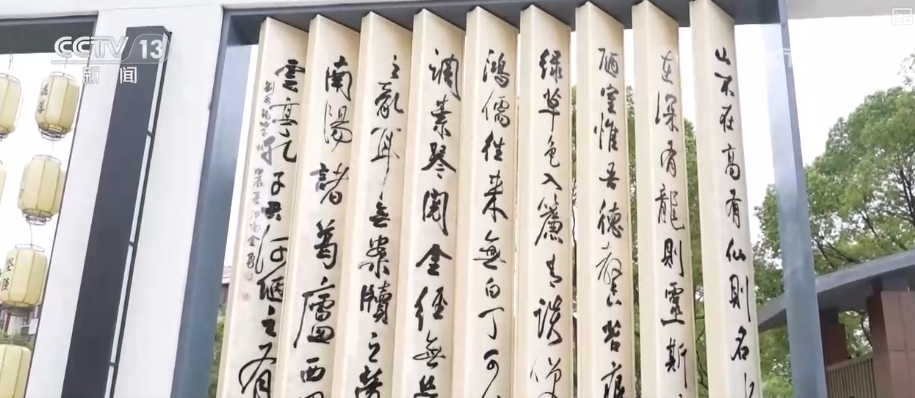 CCTV 13
新闻
山不在高有仙則名
在深有龍則靈斯
陋室惟吾德馨苔痕
绿草色入簾青談
鴻儒往来無白丁可
調素琴閱金經無
之亂耳無案牘之勞
南陽諸葛廬西
雲亭孔子云何陋之有